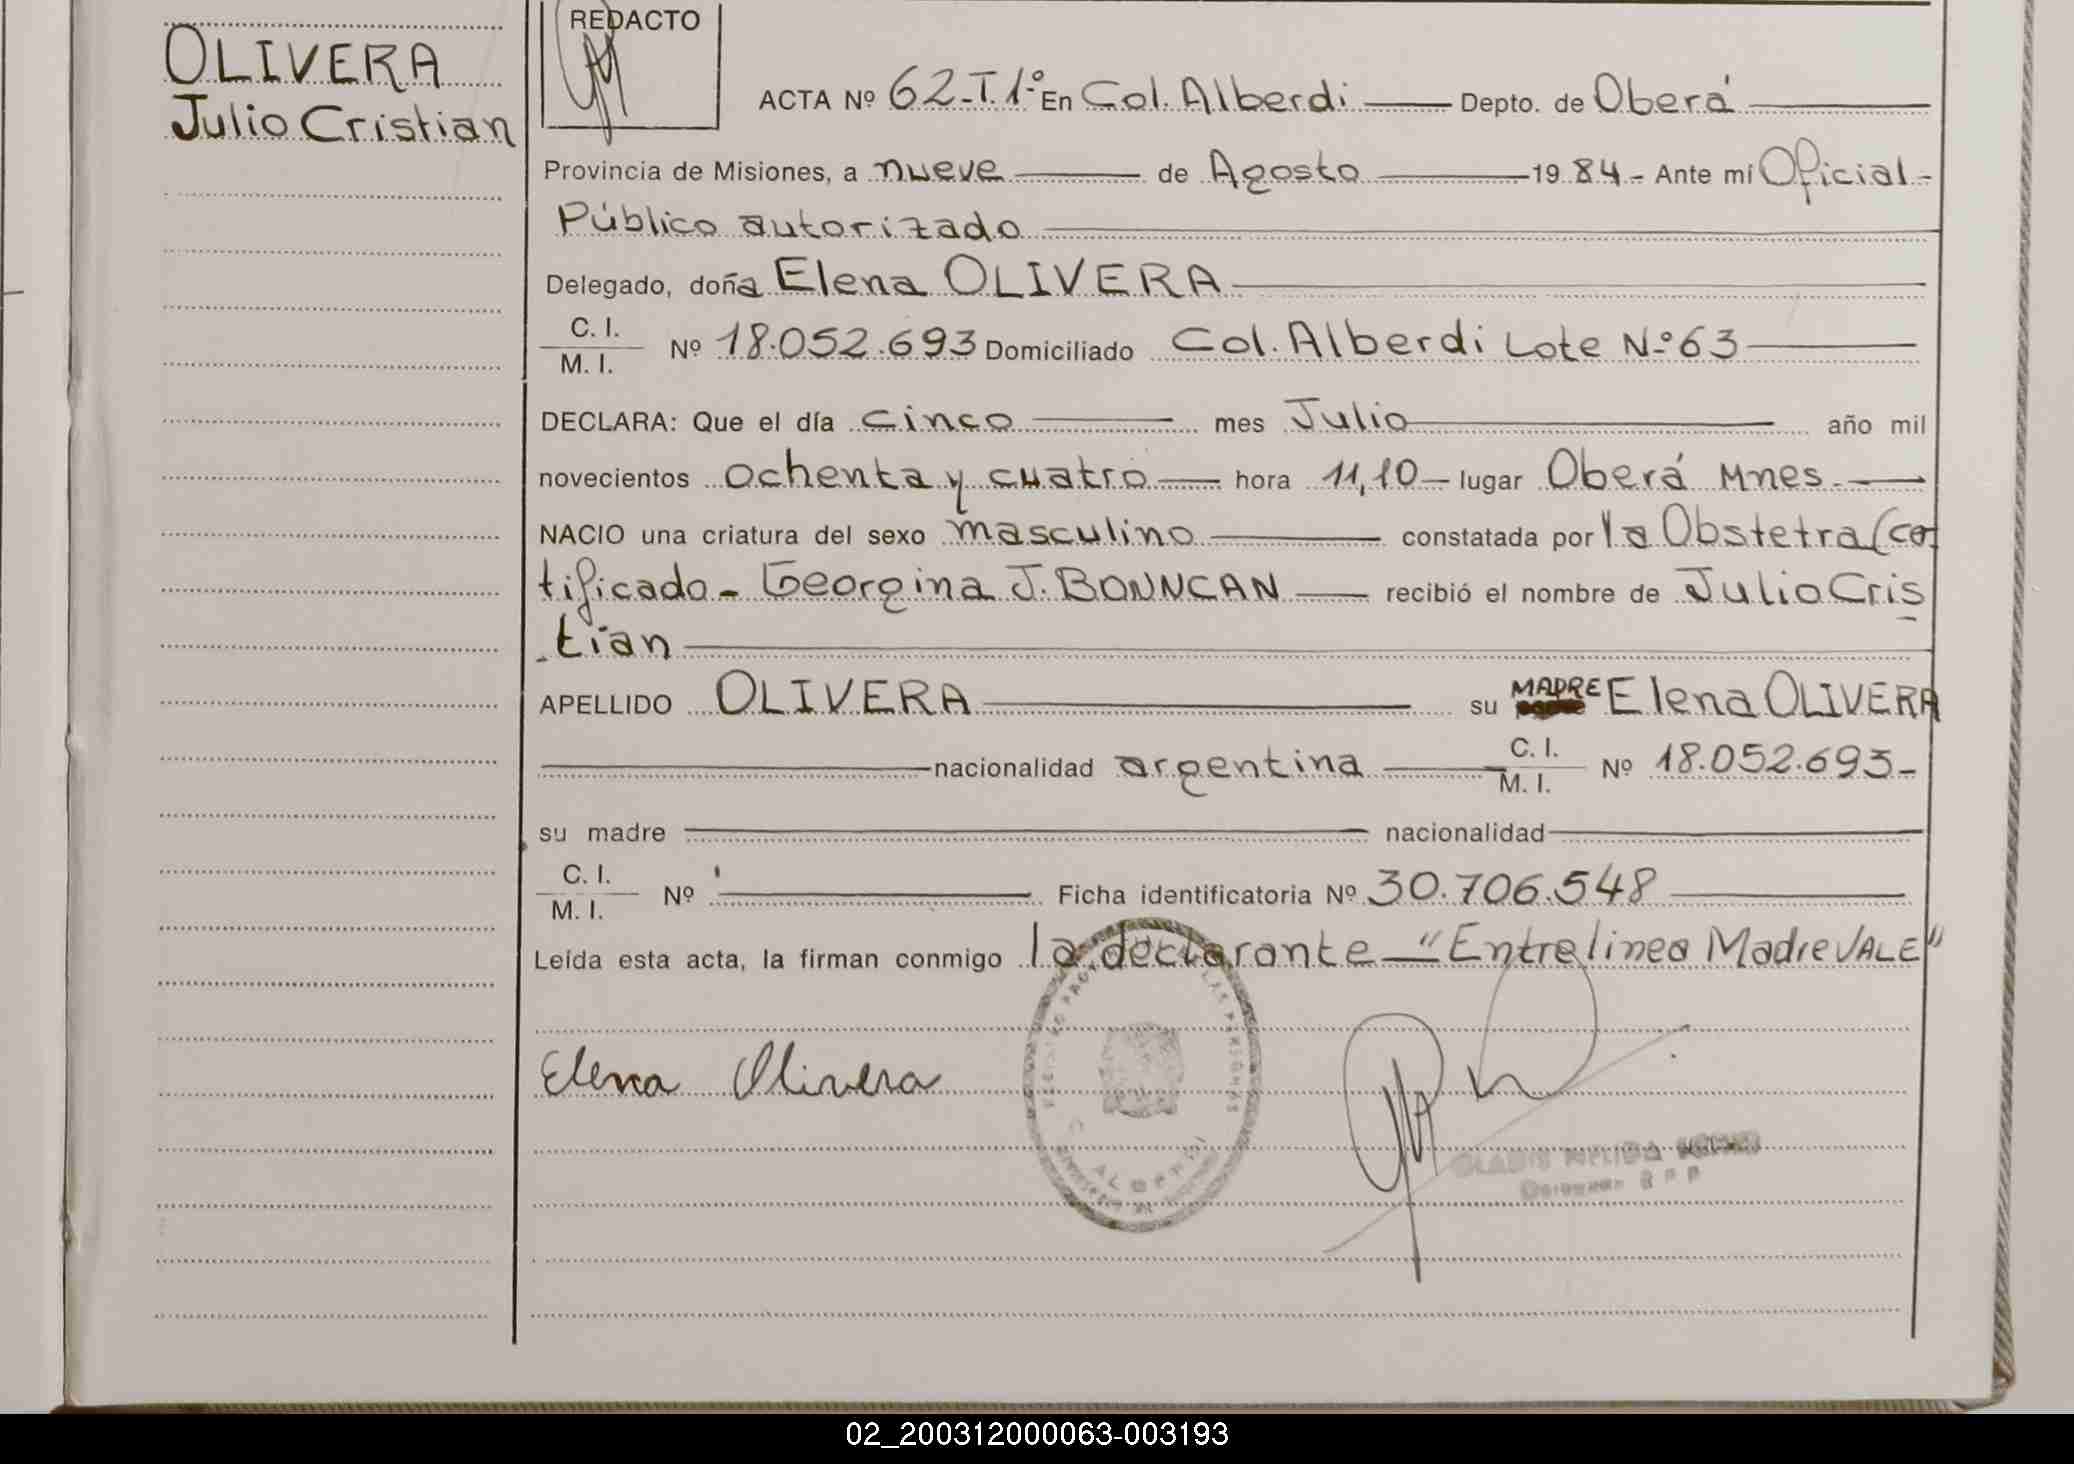 OLIVERA
Julio Cristian
REDACTO
ACTA Nº 62-T.1º En Col. Alberdi Depto. de Oberá
Provincia de Misiones, a nueve de Agosto 1984.- Ante mí Oficial-
Público autorizado
Delegado, doña Elena OLIVERA
C. I.
M. I. Nº 18.052.693 Domiciliado Col. Alberdi Lote N.º 63
DECLARA: Que el día cinco mes Julio año mil
novecientos ochenta y cuatro hora 11,10 lugar Oberá Mnes.
NACIO una criatura del sexo masculino constatada por la Obstetra (
tificado- Georgina J. BONNCAN recibió el nombre de Julio Cris
tian
APELLIDO OLIVERA su MADRE Elena OLIVERA
nacionalidad argentina C. I.
M. I. Nº 18.052.693-
su madre nacionalidad
C. I.
M. I. Nº Ficha identificatoria Nº 30.706.548
Leída esta acta, la firman conmigo la declarante "Entrelinea Madre VALE"
Elena Olivera
ALBERDI
GLADIS NELIDA
02_200312000063-003193